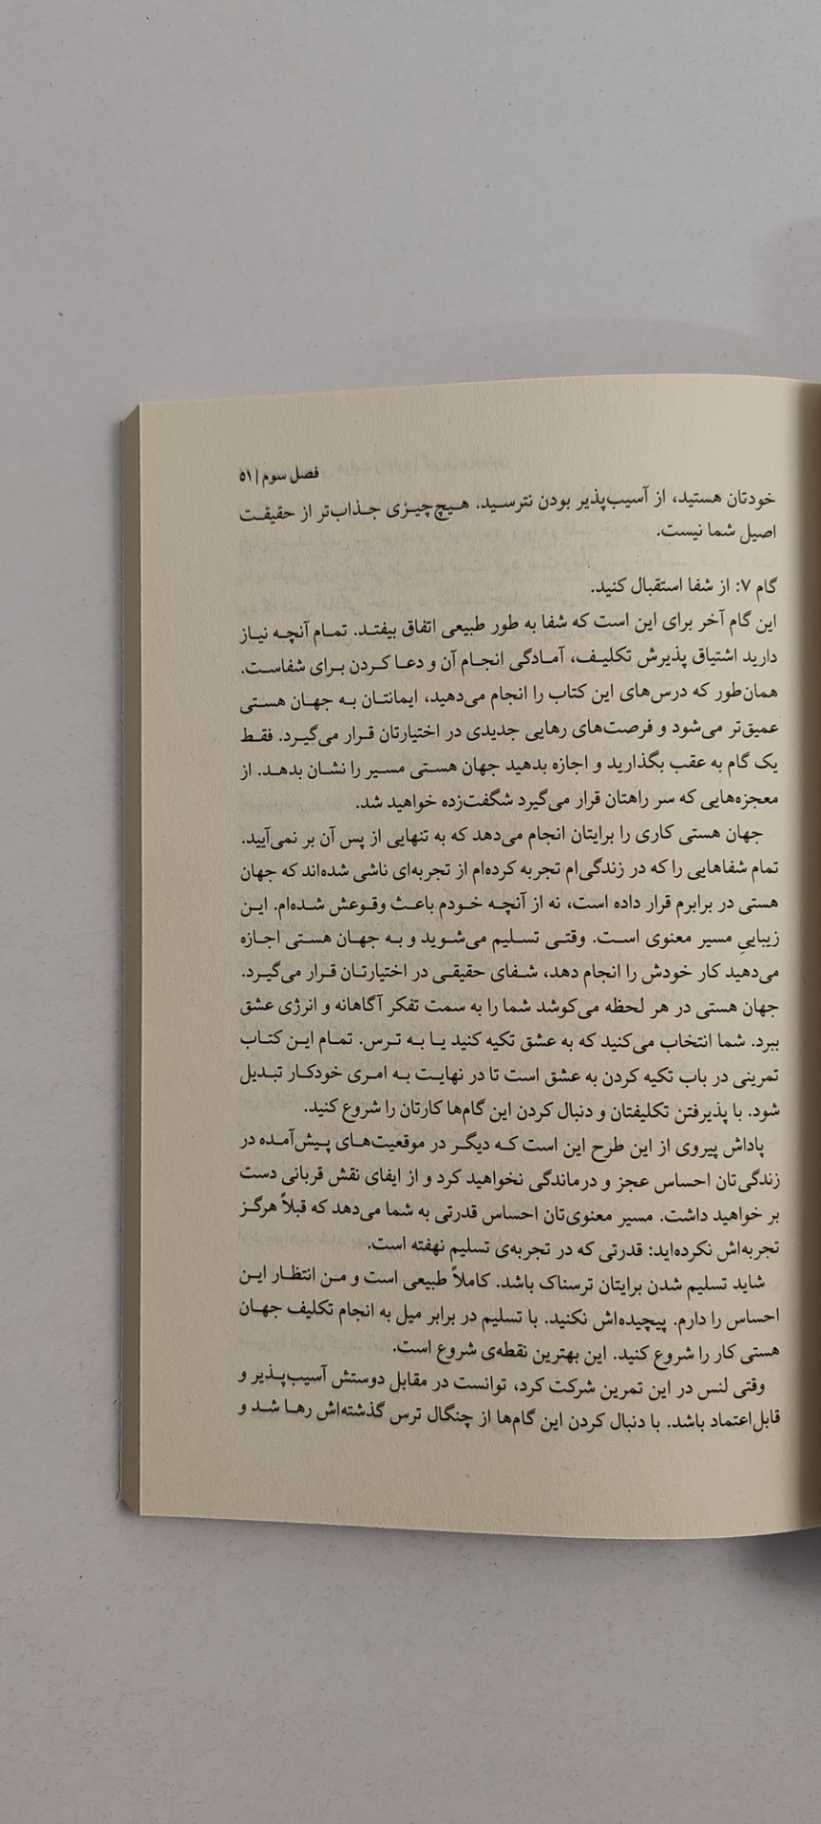 فصل سوم | ۵۱
خودتان هستید، از آسیب‌پذیر بودن نترسید. هیچ‌چیزی جذاب‌تر از حقیقت
اصیل شما نیست.
گام ۷: از شفا استقبال کنید.
این گام آخر برای این است که شفا به طور طبیعی اتفاق بیفتد. تمام آنچه نیاز
دارید اشتیاق پذیرش تکلیف، آمادگی انجام آن و دعا کردن برای شفاست.
همان‌طور که درس‌های این کتاب را انجام می‌دهید، ایمانتان به جهان هستی
عمیق‌تر می‌شود و فرصت‌های رهایی جدیدی در اختیارتان قرار می‌گیرد. فقط
یک گام به عقب بگذارید و اجازه بدهید جهان هستی مسیر را نشان بدهد. از
معجزه‌هایی که سر راهتان قرار می‌گیرد شگفت‌زده خواهید شد.
جهان هستی کاری را برایتان انجام می‌دهد که به تنهایی از پس آن بر نمی‌آیید.
تمام شفاهایی را که در زندگی‌ام تجربه کرده‌ام از تجربه‌ای ناشی شده‌اند که جهان
هستی در برابرم قرار داده است، نه از آنچه خودم باعث وقوعش شده‌ام. این
زیباییِ مسیر معنوی است. وقتی تسلیم می‌شوید و به جهان هستی اجازه
می‌دهید کار خودش را انجام دهد، شفای حقیقی در اختیارتان قرار می‌گیرد.
جهان هستی در هر لحظه می‌کوشد شما را به سمت تفکر آگاهانه و انرژی عشق
ببرد. شما انتخاب می‌کنید که به عشق تکیه کنید یا به ترس. تمام این کتاب
تمرینی در باب تکیه کردن به عشق است تا در نهایت به امری خودکار تبدیل
شود. با پذیرفتن تکلیفتان و دنبال کردن این گام‌ها کارتان را شروع کنید.
پاداش پیروی از این طرح این است که دیگر در موقعیت‌های پیش‌آمده در
زندگی‌تان احساس عجز و درماندگی نخواهید کرد و از ایفای نقش قربانی دست
بر خواهید داشت. مسیر معنوی‌تان احساس قدرتی به شما می‌دهد که قبلاً هرگز
تجربه‌اش نکرده‌اید: قدرتی که در تجربه‌ی تسلیم نهفته است.
شاید تسلیم شدن برایتان ترسناک باشد. کاملاً طبیعی است و من انتظار این
احساس را دارم. پیچیده‌اش نکنید. با تسلیم در برابر میل به انجام تکلیف جهان
هستی کار را شروع کنید. این بهترین نقطه‌ی شروع است.
وقتی لنس در این تمرین شرکت کرد، توانست در مقابل دوستش آسیب‌پذیر و
قابل‌اعتماد باشد. با دنبال کردن این گام‌ها از چنگال ترس گذشته‌اش رها شد و